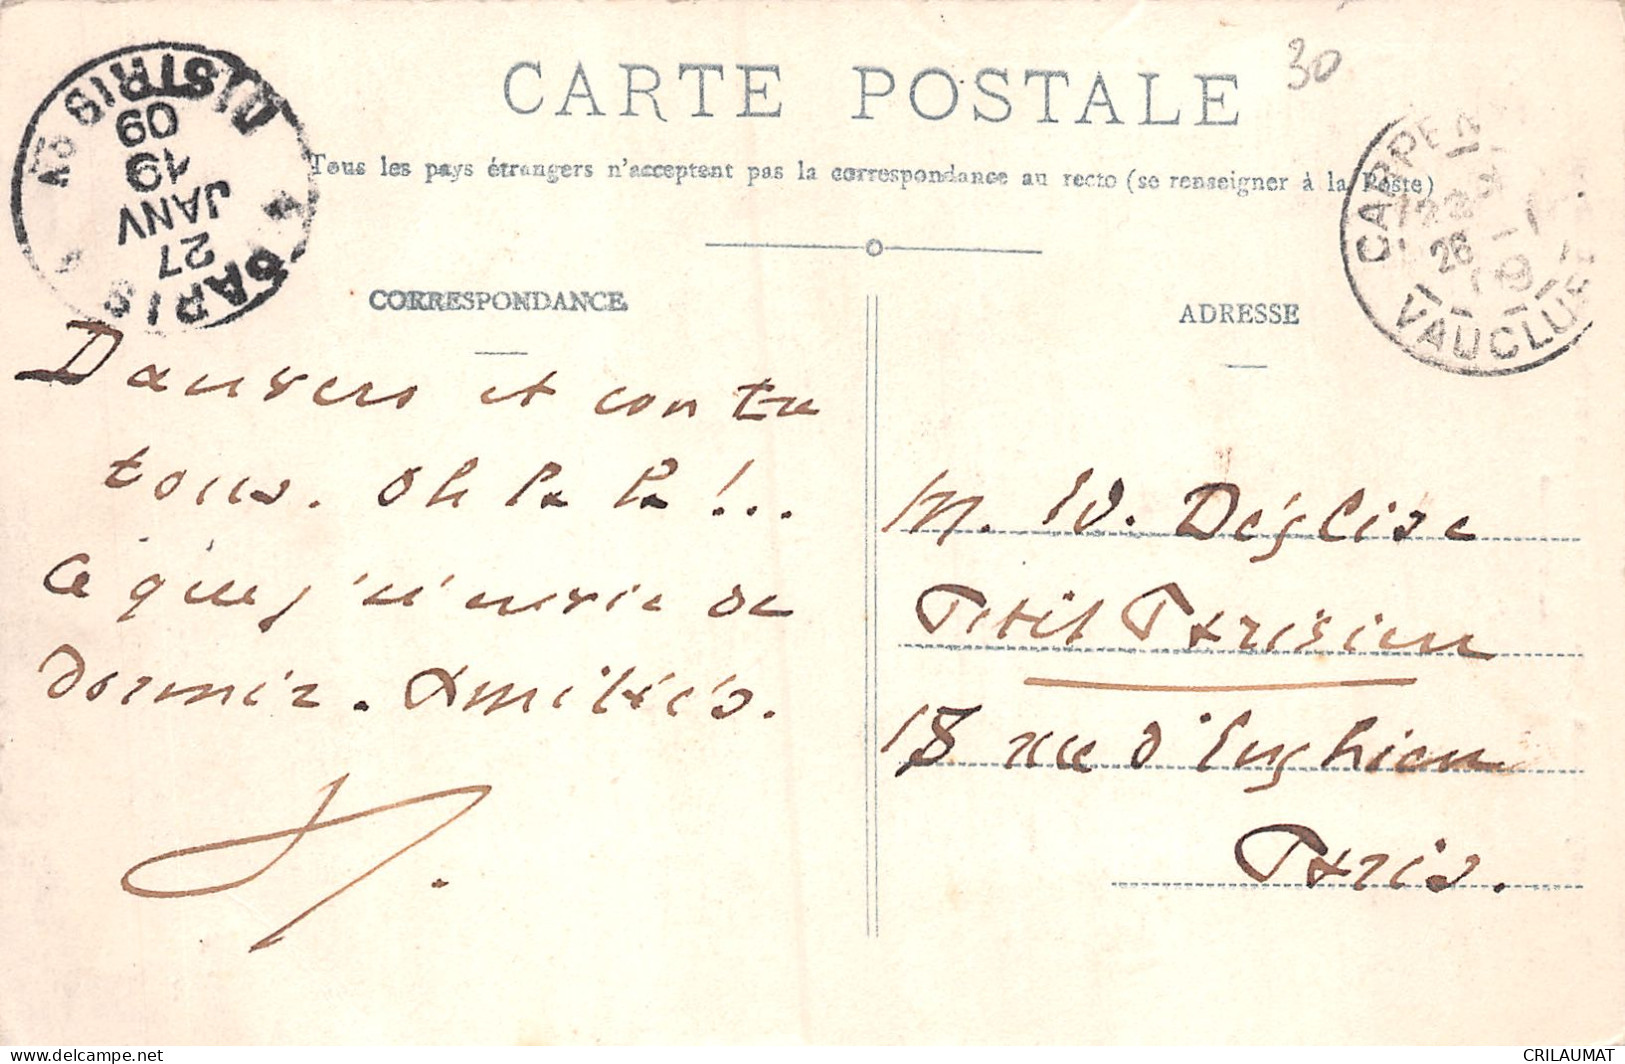 CARTE POSTALE
30
Tous les pays étrangers n'acceptent pas la correspondance au recto (se renseigner à la Poste)
PARIS
27
JANV
19
09
DISTRIB
CARPE
26 -1
09
VAUCLUSE
CORRESPONDANCE
ADRESSE
envers et contre
tous. Oh la la !...
Ce que j'ai envie de
dormir. Amitiés.
M. Ed. Déglise
Petit Parisien
18 rue d'Enghien
Paris.
CRILAUMAT